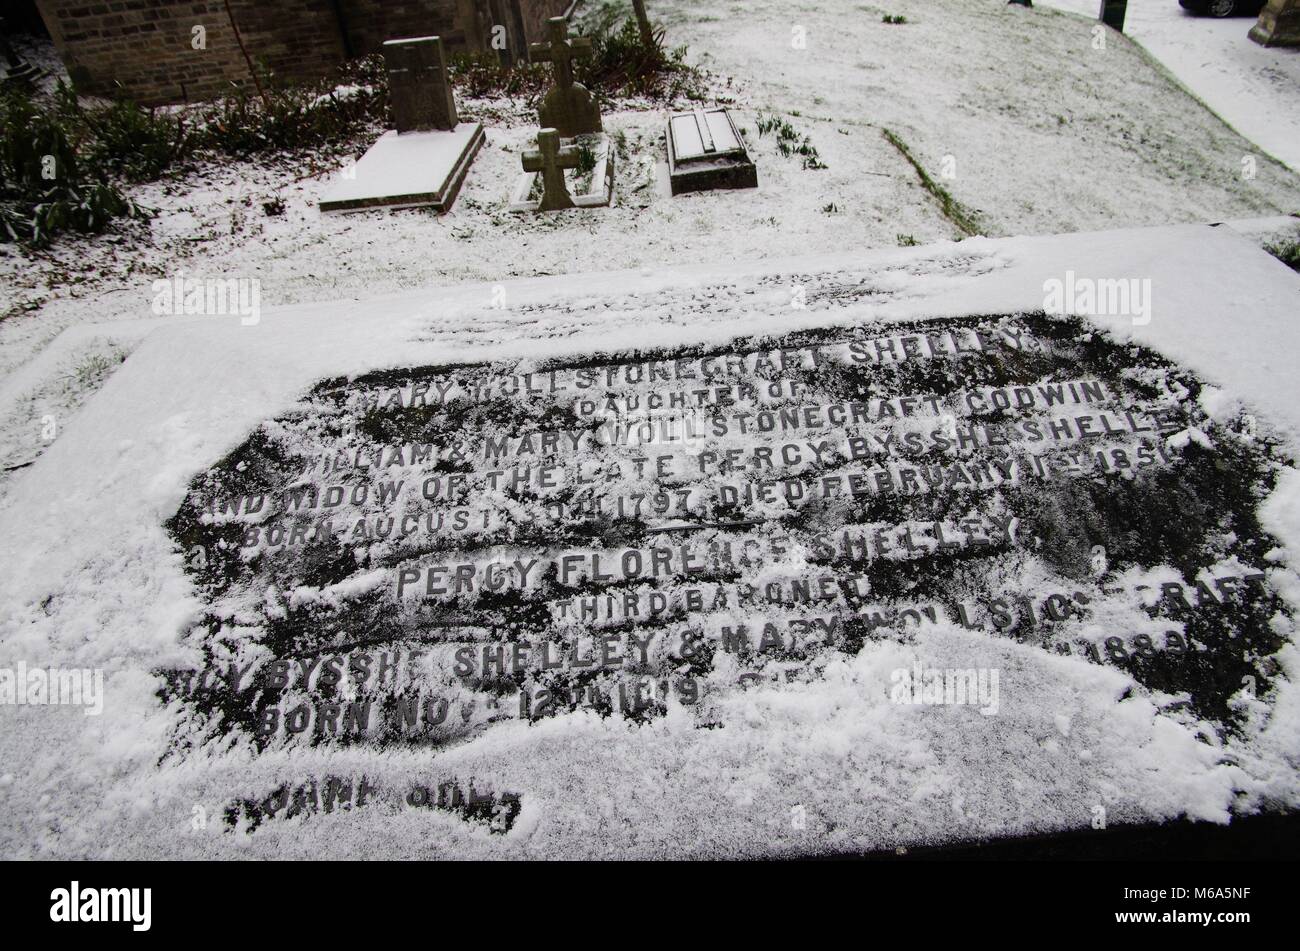 MARY WOLLSTONECRAFT SHELLEY,
DAUGHTER OF
WILLIAM & MARY WOLLSTONECRAFT GODWIN,
AND WIDOW OF THE LATE PERCY BYSSHE SHELLE
BORN AUGUST TH 1797, DIED FEBRUARY 1ST 1851.
PERCY FLORENCE SHELLEY
THIRD BARONET
BYSSHE SHELLEY & MARY WOLLSTONECRAFT
BORN NOVR 12TH 1819, 1889.
JANE
alamy
alamy
Image ID: M6A5NF
www.alamy.com